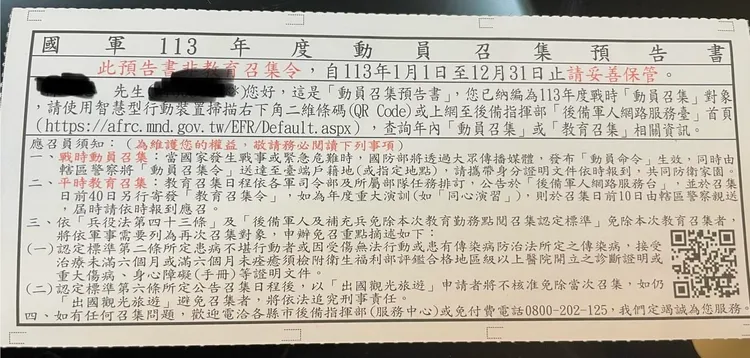 國軍113年度動員召集預告書
此預告書非教育召集令，自113年1月1日至12月31日止請妥善保管。
先生 您好，這是「動員召集預告書」，您已納編為113年度戰時「動員召集」對象
，請使用智慧型行動裝置掃描右下角二維條碼(QR Code)或上網至後備指揮部「後備軍人網路服務臺」首頁
(https://afrc.mnd.gov.tw/EFR/Default.aspx)，查詢年內「動員召集」或「教育召集」相關資訊。
應召員須知：(為維護您的權益，敬請務必閱讀下列事項)
一、戰時動員召集：當國家發生戰事或緊急危難時，國防部將透過大眾傳播媒體，發布「動員命令」生效，同時由
轄區警察將「動員召集令」送達至臺端戶籍地(或指定地點)，請攜帶身分證明文件依時報到，共同防衛家園。
二、平時教育召集：教育召集日程依各軍司令部及所屬部隊任務排訂，公告於「後備軍人網路服務台」，並於召集
日前40日另行寄發「教育召集令」，如為年度重大演訓(如「同心演習」)，則於召集日前10日由轄區警察親送
，屆時請依時報到應召。
三、依「兵役法第四十三條」及「後備軍人及補充兵免除本次教育勤務點閱召集認定標準」免除本次教育召集者，
將依軍事需要列為再次召集對象，申辦免召重點摘述如下：
(一)認定標準第二條所定患病不堪行動者或因受傷無法行動或患有傳染病防治法所定之傳染病，接受
治療未滿六個月或滿六個月未痊癒須檢附衛生福利部評鑑合格地區級以上醫院開立之診斷證明或
重大傷病、身心障礙(手冊)等證明文件。
(二)認定標準第六條所定公告召集日程後，以「出國觀光旅遊」申請者將不核准免除當次召集，如仍
「出國觀光旅遊」避免召集者，將依法追究刑事責任。
四、如有任何召集問題，歡迎電洽各縣市後備指揮部(服務中心)或免付費電話0800-202-125，我們定竭誠為您服務。